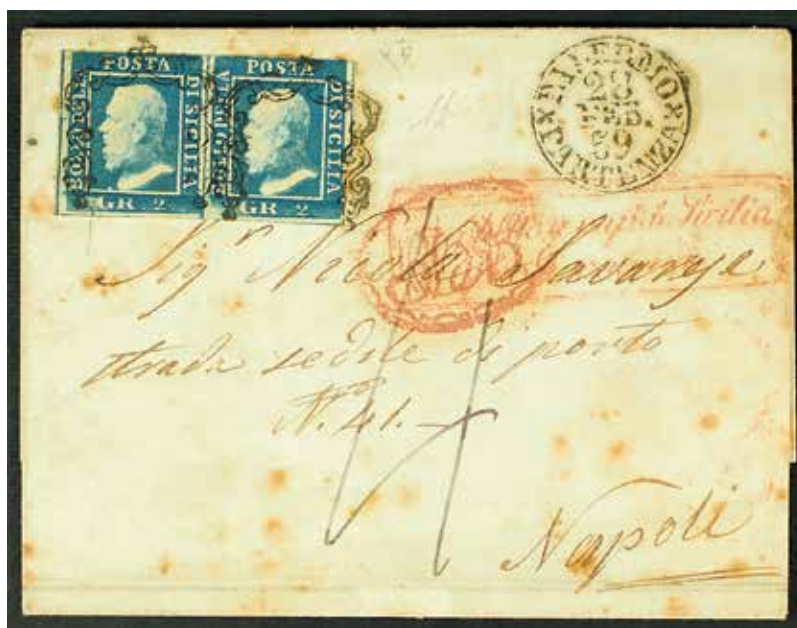 POSTA
BOLLO DELLA
DI SICILIA
GR 2
POSTA
DI SICILIA
GR 2
PALERMO
28
FEB.
59
PARTENZA
Sicilia
Sigr Nicola Savarese
strada sedile di porto
N. 41.
Napoli